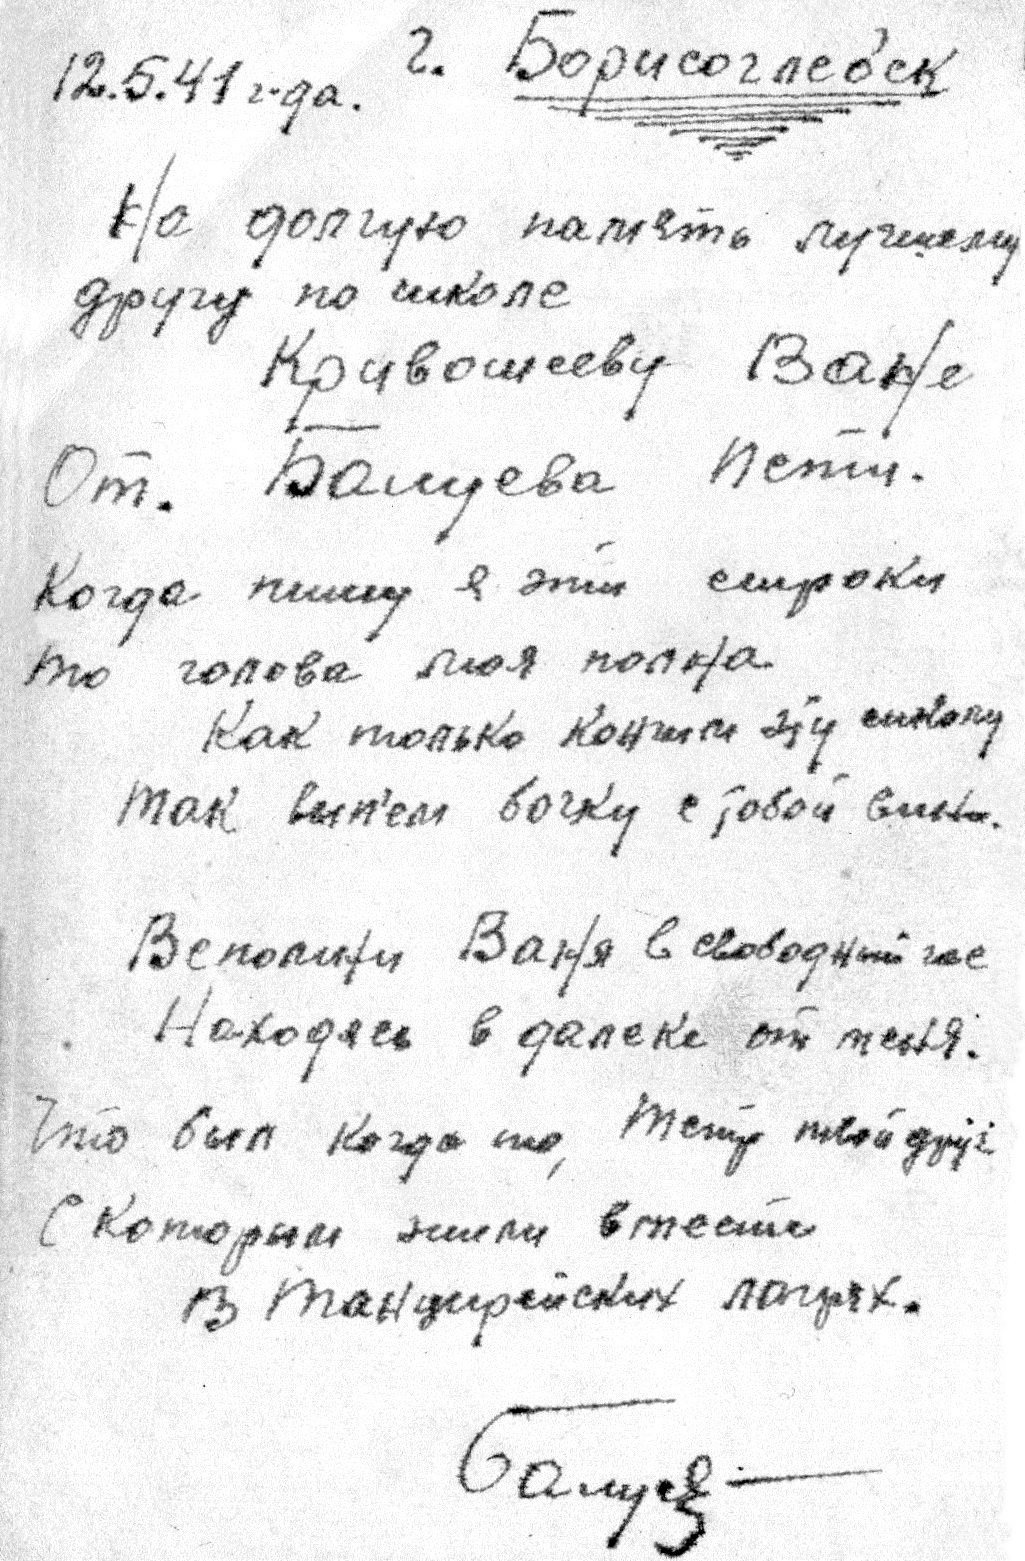 12.5.41 г-да. г. Борисоглебск
На долгую память лучшему
другу по школе
Кривошееву Ване
От. Балуева Пети.
Когда пишу я эти строки
то голова моя полна
Как только кончим эту школу
так выпьем бочку с тобой вина.
Вспомни Ваня в свободный час
Находясь в далеке от меня.
Что был когда то, Петр твой друг
С которым жили вместе
в Танцирейских лагрях.
Балуев